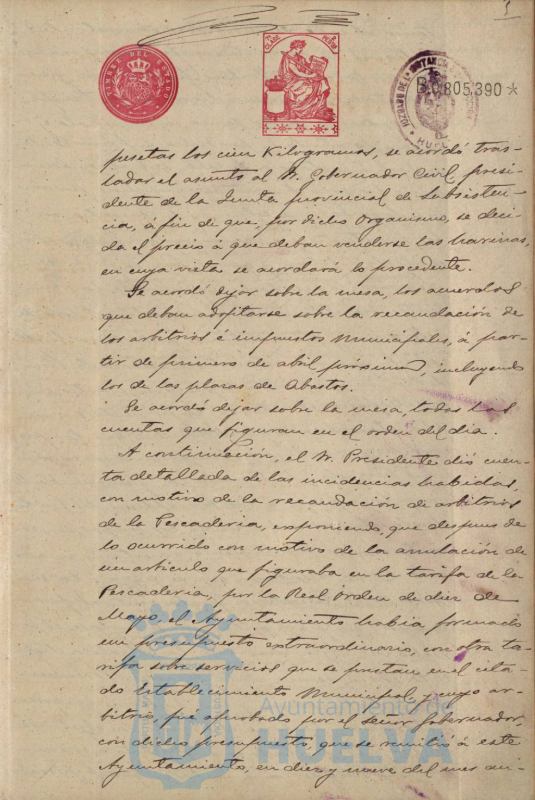 1
TIMBRE DEL ESTADO
CLASE
B.0.805.390 *
JUZGADO DE 1ª INSTANCIA
HUELVA
pesetas los cien Kilogramos, se acordó tras-
ladar el asunto al Sr. Gobernador Civil, presi-
dente de la Junta provincial de Subsisten-
cia, á fin de que, por dicho Organismo, se deci-
da el precio á que deban venderse las harinas,
en cuya vista se acordará lo procedente.
Se acordó dejar sobre la mesa, los acuerdos
que deban adoptarse sobre la recaudación de
los arbitrios é impuestos Municipales, á par-
tir de primero de abril próximo, incluyendo
los de las plazas de Abastos.
Se acordó dejar sobre la mesa, todas las
cuentas que figuran en el orden del dia.
A continuación, el Sr. Presidente dió cuen-
ta detallada de las incidencias habidas,
con motivo de la recaudación de arbitrios
de la Pescaderia, exponiendo, que despues de
lo ocurrido con motivo de la anulación de
un articulo que figuraba en la tarifa de la
Pescaderia, por la Real Orden de diez de
Mayo, el Ayuntamiento habia formado
un presupuesto extraordinario, con otra ta-
rifa sobre servicios que se prestan en el cita-
do establecimiento Municipal, y cuyo ar-
bitrio, fué aprobado por el señor Gobernador,
con dicho presupuesto, que se remitió á este
Ayuntamiento, en diez y nueve del mes an-
Ayuntamiento de
HUELVA